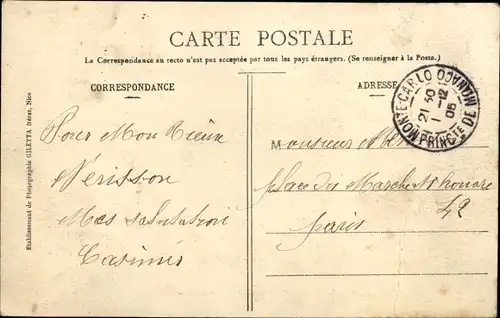 CARTE POSTALE
La Correspondance au recto n'est pas acceptée par tous les pays étrangers. (Se renseigner à la Poste.)
CORRESPONDANCE
ADRESSE
MONTE-CARLO
21 30
1 -12
05
PRINCTÉ DE MONACO
Pour Mon Vieux
Vérisson
Mes salutation
Casimir
Monsieur
place du Marché St honoré
42
paris
Etablissement de Photographie GILETTA frères, Nice